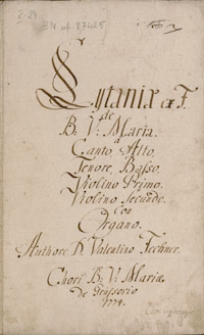 Lytaniæ ex F.
de
B. V. Maria.
a
Canto, Alto,
Tenore, Basso,
Violino Primo.
Violino Secundo.
Con
Organo.
Authore D. Valentino Fechner.
Chori B. V. Mariæ
De Grissorio
1774.